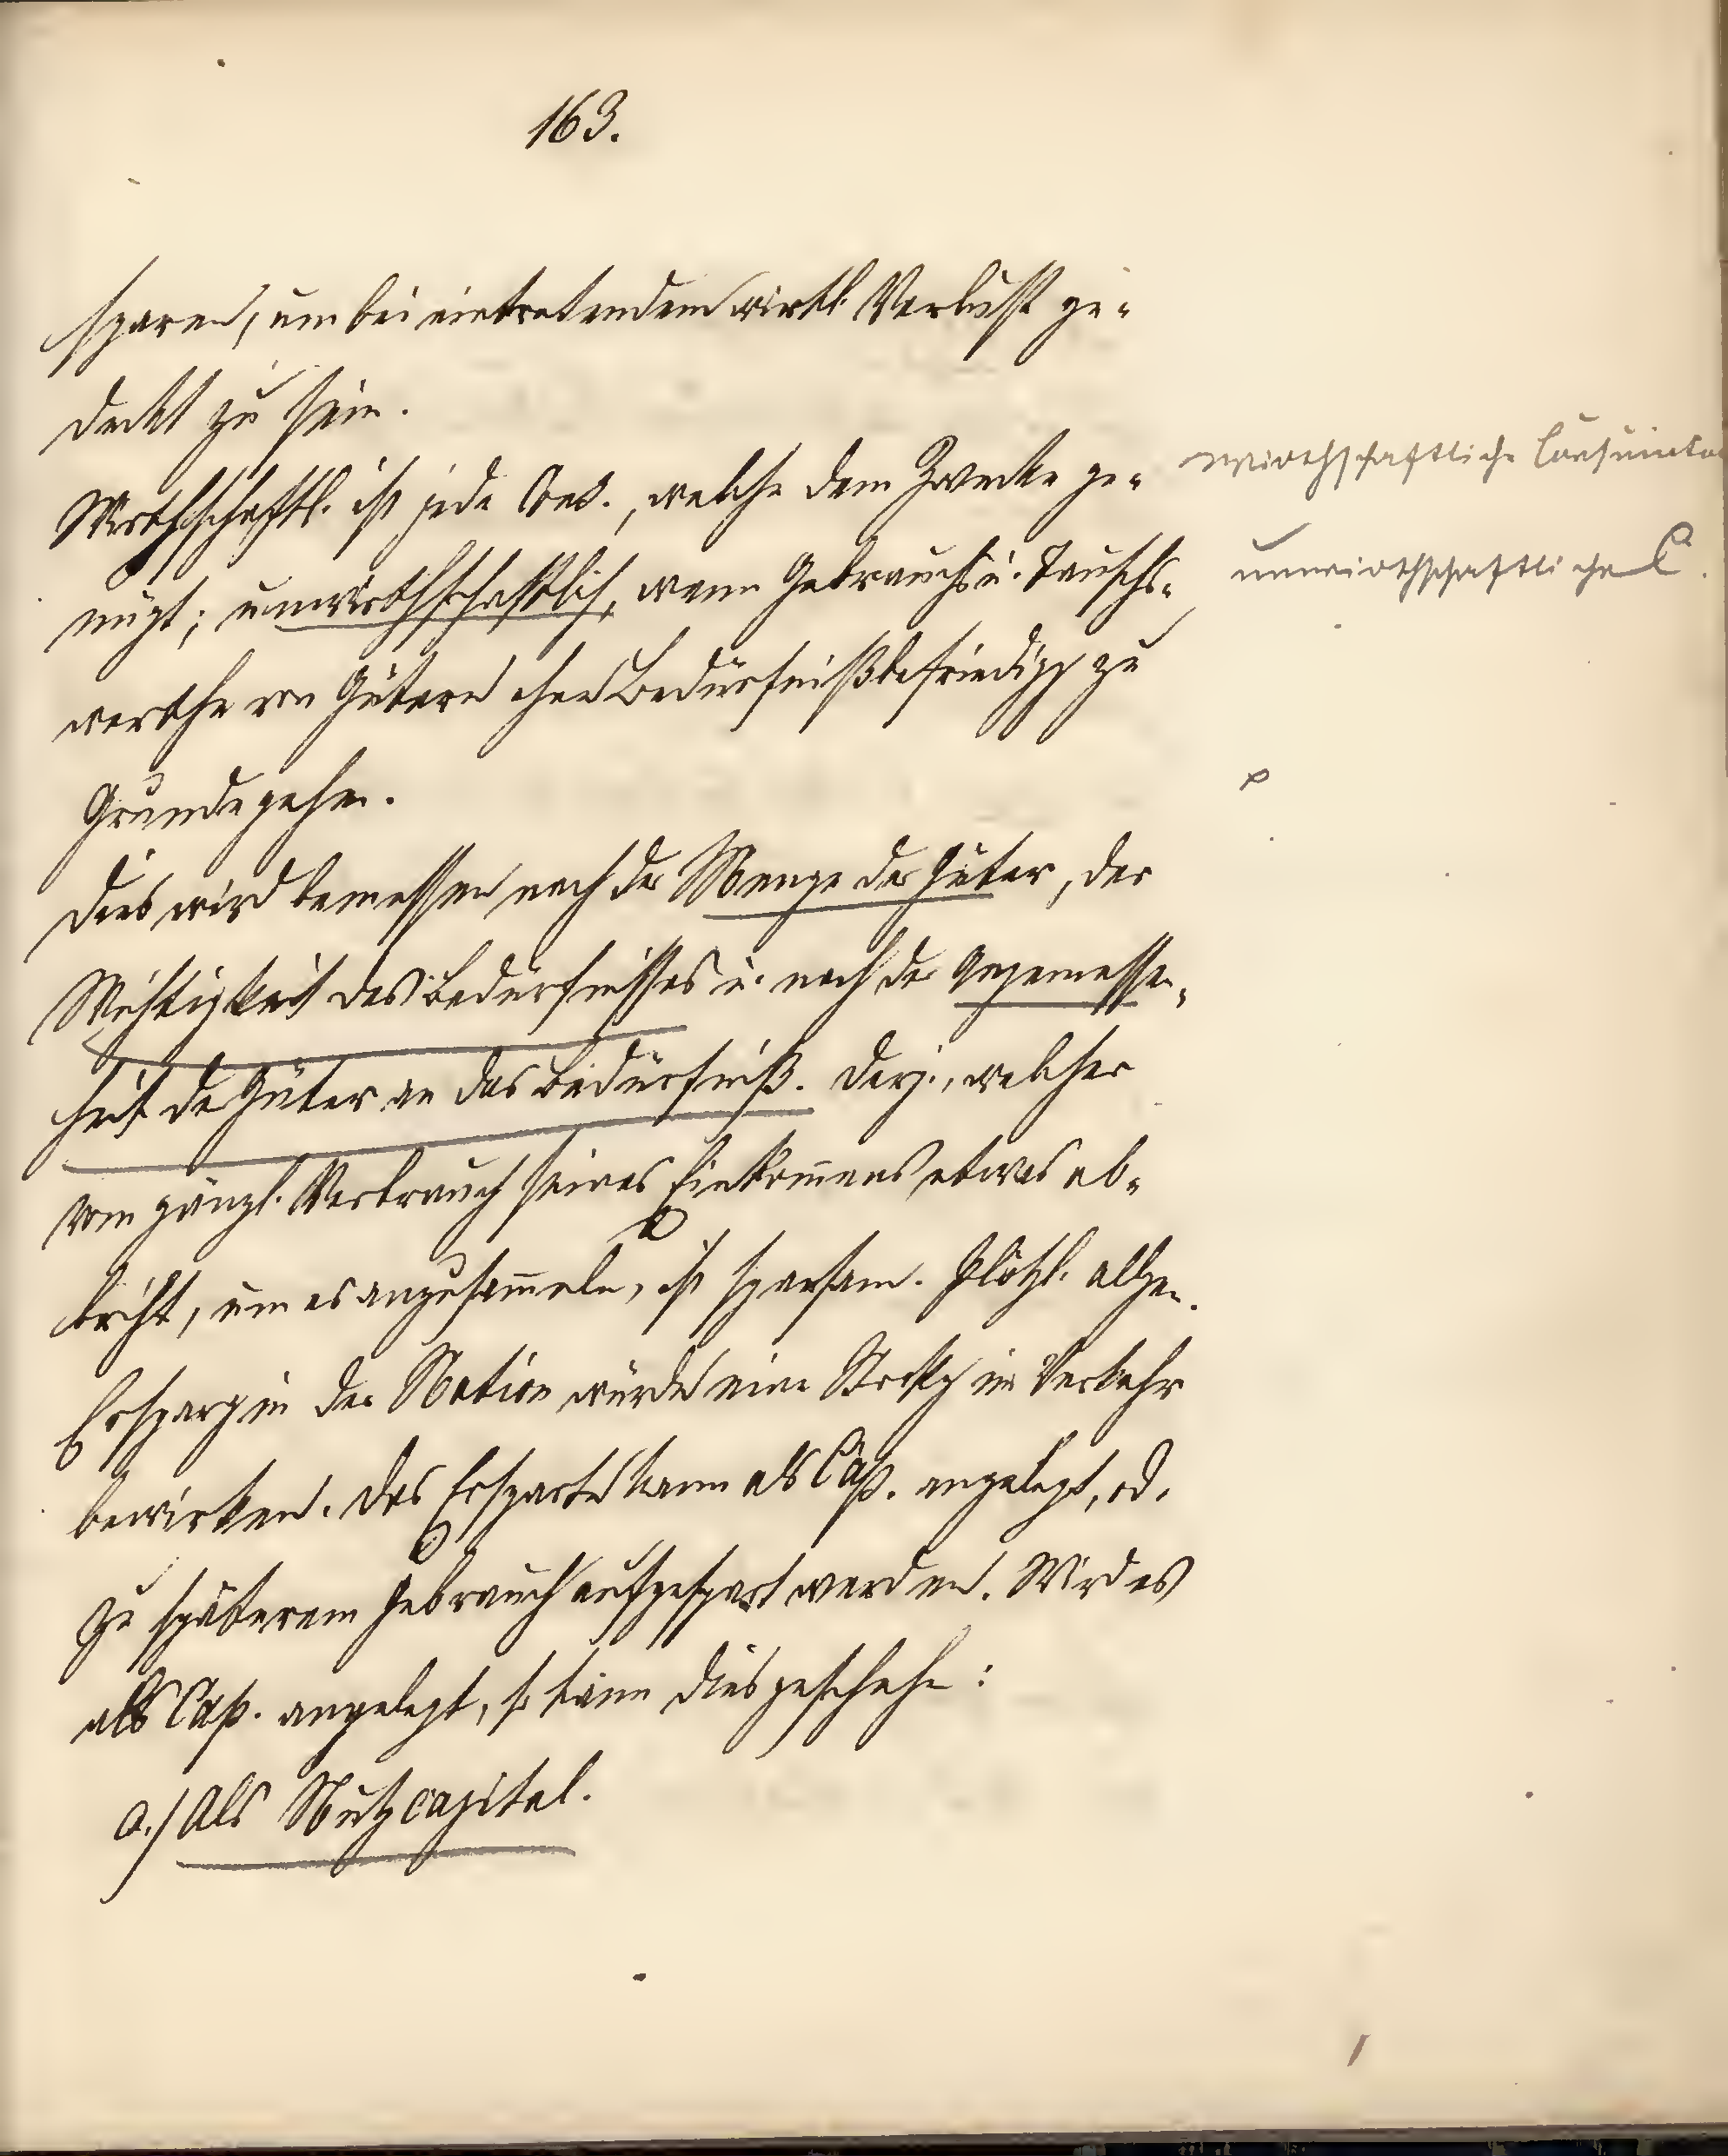 163.
sparen, um bei eintretendem wirkl. Verlust ge-
deckt zu sein.
Wirthschaftl. ist jede Cons., welche dem Zwecke ge-
nügt; unwirthschaftlich, wenn Gebrauchs u. Tausch-
werthe von Gütern ohne Bedürfnißbefriedigg zu
Grunde gehen.
Dies wird bemessen nach der Menge der Güter, der
Wichtigkeit des Bedürfnisses u. nach der Angemessen-
heit der Güter an das Bedürfniß. Derj., welcher
vom gänzl. Verbrauch seines Einkom̅ens etwas ab-
bricht, um es anzusam̅eln, ist sparsam. Plötzl. allgem.
Ersparg in der Nation würde eine Stockg im Verkehr
bewirken. Das Ersparte kann als Cap. angelegt, od.
zu späterem Gebrauch aufgespart werden. Wird es
als Cap. angelegt, so kann dies geschehen:
a./ Als Nutzcapital.
wirthschaftliche
unwirthschaftliche C.